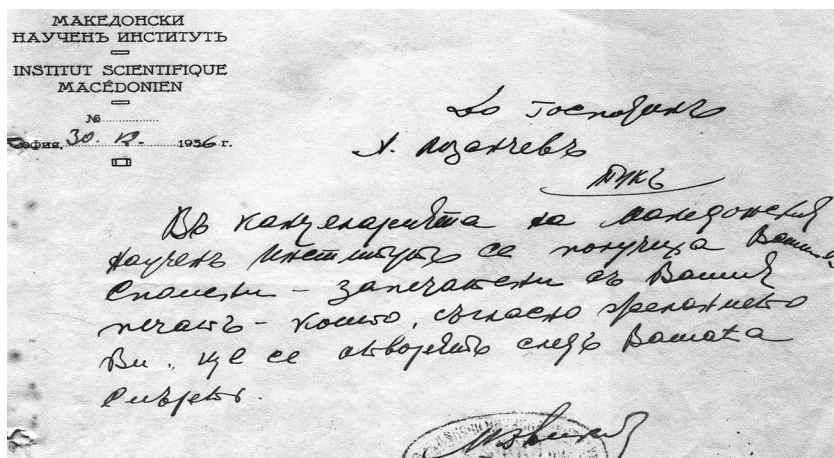 МАКЕДОНСКИ
НАУЧЕНЪ ИНСТИТУТЪ
INSTITUT SCIENTIFIQUE
MACÉDONIEN
№
София, 30. 1936 г.
До Господинъ
А. Лозанчевъ
Тукъ
Въ канцеларията на Македонския
Наученъ Институтъ се получиха Вашите
Спомени – запечатени съ Вашия
печатъ – които, съгласно желанието
Ви, ще се отворятъ следъ Вашата
смърть.